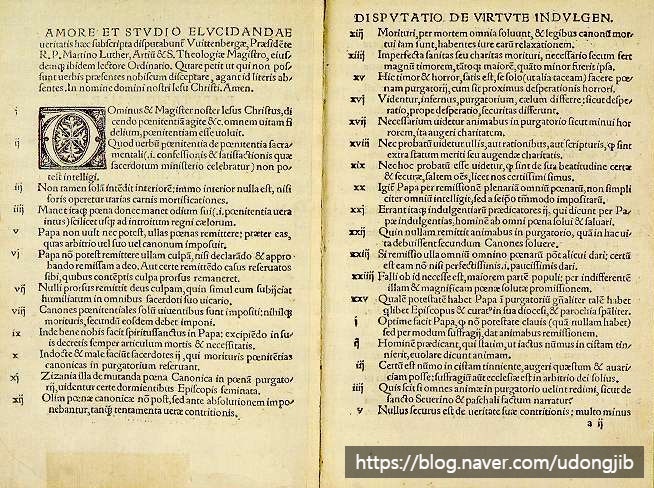 AMORE ET STVDIO ELVCIDANDAE
ueritatis hæc subscripta disputabunt̃ Vuittenbergæ, Præsidẽte
R. P. Martino Luther, Artiũ & S. Theologiæ Magistro, eius-
demq̃ ibidem lectore Ordinario. Quare petit ut qui non pos-
sunt uerbis præsentes nobiscum disceptare, agant id literis ab-
sentes. In nomine domini nostri Iesu Christi. Amen.
i DOminus & Magister noster Iesus Christus, di
cendo pœnitentiã agite &c. omnem uitam fi
delium, pœnitentiam esse uoluit.
ij Quod uerbũ pœnitentia de pœnitentia sacra-
mentali (.i. confessionis & satisfactionis quæ
sacerdotum ministerio celebratur) non po-
test intelligi.
iij Non tamen solã intẽdit interiorẽ; immo interior nulla est, nisi
foris operetur uarias carnis mortificationes.
iiij Manet itaq; pœna donec manet odium sui (.i. pœnitentia uera
intus) scilicet usq; ad introitum regni cælorum.
v Papa non uult nec potest, ullas pœnas remittere; præter eas,
quas arbitrio uel suo uel canonum imposuit.
vj Papa nõ potest remittere ullam culpã, nisi declarãdo & appro
bando remissam a deo. Aut certe remittẽdo casus reseruatos
sibi, quibus contẽptis culpa prorsus remaneret.
vij Nulli prorsus remittit deus culpam, quin simul eum subijciat
humiliatum in omnibus sacerdoti suo uicario.
viij Canones pœnitentiales solũ uiuentibus sunt impositi; nihilq;
morituris, secundũ eosdem debet imponi.
ix Inde bene nobis facit spiritussanctus in Papa; excipiẽdo in su-
is decretis semper articulum mortis & necessitatis.
x Indocte & male faciũt sacerdotes ij, qui morituris pœnitẽtias
canonicas in purgatorium reseruant.
xj Zizania illa de mutanda pœna Canonica in pœnã purgato-
rij, uidentur certe dormientibus Episcopis seminata.
xij Olim pœnæ canonicæ nõ post, sed ante absolutionem impo-
nebantur, tanq̃ tentamenta ueræ contritionis.
DISPVTATIO DE VIRTVTE INDVLGEN.
xiij Morituri, per mortem omnia soluunt, & legibus canonũ mor-
tui iam sunt, habentes iure earũ relaxationem.
xiiij Imperfecta sanitas seu charitas morituri, necessario secum fert
magnũ timorem, tãtoq; maiorẽ, quãto minor fuerit ipsa.
xv Hic timor & horror, satis est, se solo (ut alia taceam) facere pœ-
nam purgatorij, cum sit proximus desperationis horrori.
xvj Videntur, infernus, purgatorium, cælum differre; sicut despe-
ratio, prope desperatio, securitas differunt.
xvij Necessarium uidetur animabus in purgatorio sicut minui hor
rorem, ita augeri charitatem.
xviij Nec probatũ uidetur ullis, aut rationibus, aut scripturis, q̃ sint
extra statum meriti seu augendæ charitatis.
xix Nec hoc probatũ esse uidetur, q̃ sint de sua beatitudine certæ
& securæ, saltem oẽs, licet nos certissimi simus.
xx Igit̃ Papa per remissionẽ plenariã omniũ pœnarũ, non simpli
citer omniũ intelligit, sed a seip̃o tm̃mõ impositarũ.
xxj Errant itaq; indulgentiarũ prædicatores ij, qui dicunt per Pa-
pæ indulgentias, hominẽ ab omni pœna solui & saluari.
xxij Quin nullam remittit animabus in purgatorio, quã in hac ui-
ta debuissent secundum Canones soluere.
xxiij Si remissio ulla omniũ omnino pœnarũ põt alicui dari; certũ
est eam nõ nisi perfectissimis, .i. paucissimis dari.
xxiiij Falli ob id necesse est, maiorem partẽ populi; per indifferentẽ
illam & magnificam pœnæ solutæ promissionem.
xxv Qualẽ potestatẽ habet Papa ĩ purgatoriũ gñaliter talẽ habet
q̃libet Episcopus & curat̃ in sua diœcesi, & parochia sp̃aliter.
j Optime facit Papa, q̃ nõ potestate clauis (quã nullam habet)
sed per modum suffragij, dat animabus remissionem.
ij Hominẽ prædicant, qui statim, ut iactus nũmus in cistam tin-
nierit, euolare dicunt animam.
iij Certũ est nũmo in cistam tinniente, augeri quæstum & auari-
ciam posse; suffragiũ aũt ecclesiæ est in arbitrio dei solius.
iiij Quis scit si omnes animæ in purgatorio uelint redimi, sicut de
sancto Seuerino & paschali factum narratur.
v Nullus securus est de ueritate suæ contritionis; multo minus
a ij
https://blog.naver.com/udongjib